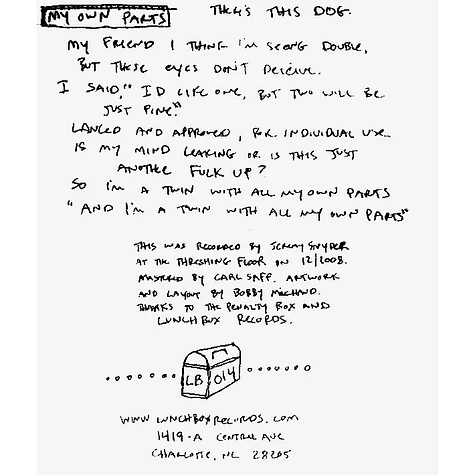 MY OWN PARTS
THERE'S THIS DOG.
MY FRIEND I THINK I'M SEEING DOUBLE,
BUT THESE EYES DON'T DECEIVE.
I SAID, "I'D LIKE ONE, BUT TWO WILL BE
JUST FINE."
LANCED AND APPROVED, FOR INDIVIDUAL USE..
IS MY MIND LEAKING OR IS THIS JUST
ANOTHER FUCK UP?
SO I'M A TWIN WITH ALL MY OWN PARTS
"AND I'M A TWIN WITH ALL MY OWN PARTS"
THIS WAS RECORDED BY JEREMY SNYDER
AT THE THRESHING FLOOR ON 12/2008.
MASTERED BY CARL SAFF. ARTWORK
AND LAYOUT BY BOBBY MICHAUD.
THANKS TO THE PENALTY BOX AND
LUNCHBOX RECORDS.
LB 014
WWW LUNCHBOXRECORDS.COM
1419-A CENTRAL AVE
CHARLOTTE, NC 28205